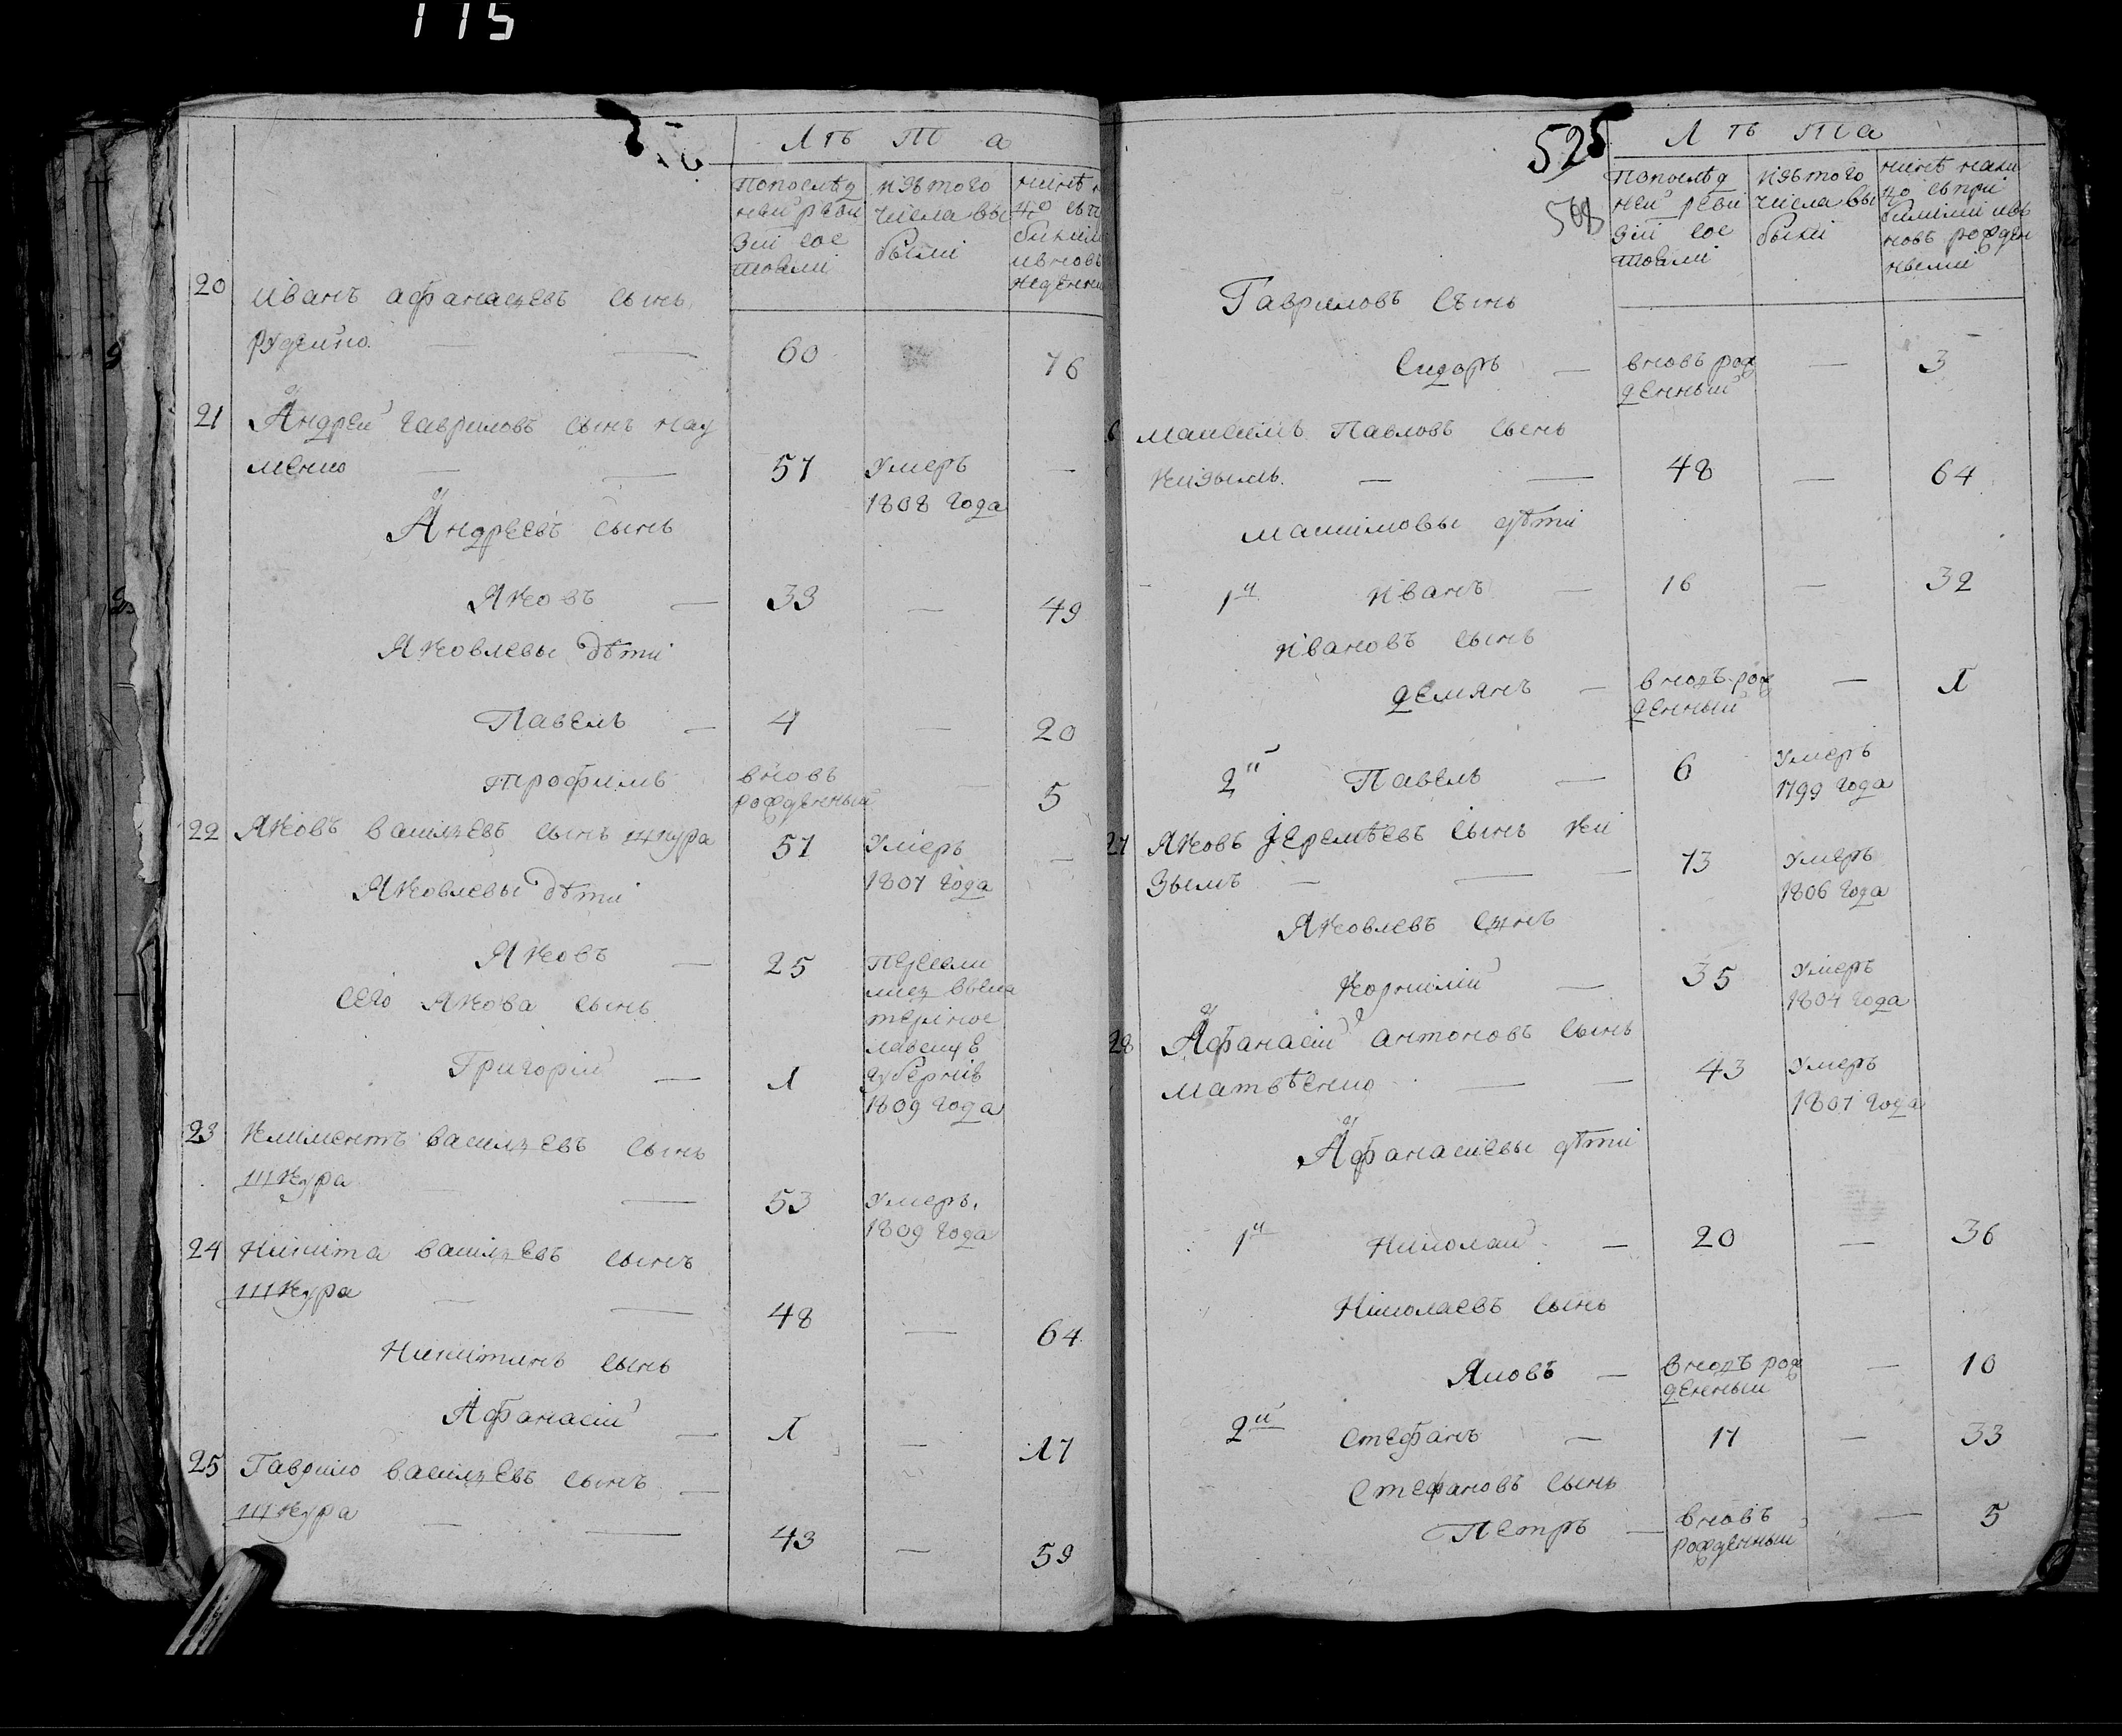 115
Лѣта
Попослѣд
ней реви
зіи сос
тояли
изъ того
числа вы
были
20 Иванъ Афанасьевъ сынъ
Руденко — — 60 76
21 Андрей Гавриловъ сынъ Нау
менко — — 51 умеръ —
1808 года
Андреевъ сынъ
Яковъ — 33 — 49
Яковлевы дѣти
Павелъ — 4 — 20
Трофимъ вновь
рожденный — 5
22 Яковъ Васильевъ сынъ Шкура 51 умеръ —
1807 года
Яковлевы дѣти
Яковъ — 25 Пересели
лись въ Ека
теринос
лавскую
губернію
1809 года
Сего Якова сынъ
Григорій — 1
23 Климентъ Васильевъ сынъ
Шкура — 53 умеръ
1809 года
24 Никита Васильевъ сынъ
Шкура — — 48 — 64
Никитинъ сынъ
Афанасій — 1 — 17
25 Гаврило Васильевъ сынъ —
Шкура — — 43 — 59
525
508
Лѣта
Попослѣд
ней реви
зіи сос
тояли
изъ того
числа вы
были
нинѣ нали
цо съ при
билими ивъ
новь рожден
ными
Гавриловъ сынъ
Сидоръ — вновь рож
денный — 3
Максимъ Павловъ сынъ
Кизымъ — — 48 — 64
Максимовы дѣти
1й Иванъ — 16 — 32
Ивановъ сынъ
Демянъ — вновь рож
денный — 1
2й Павелъ — 6 умеръ
1799 года
27 Яковъ Еремѣевъ сынъ Ки
зымъ — — 73 умеръ
1806 года
Яковлевъ сынъ
Корнилій — 35 умеръ
1804 года
28 Афанасій Антоновъ сынъ
Матвѣенко — — 43 умеръ
1807 года
Афанасіевы дѣти
1й Николай — 20 — 36
Николаевъ сынъ
Яковъ — вновь рож
денный — 10
2й Стефанъ — 17 — 33
Стефановъ сынъ
Петръ — вновь
рожденный — 5